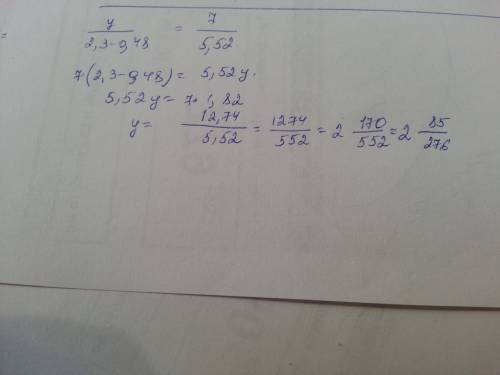 = y/2,3-0,48 = 7/5,52
7(2,3-0,48) = 5,52y.
5,52y = 7·1,82
y = 12,74/5,52 = 1274/552 = 2 170/552 = 2 85/276